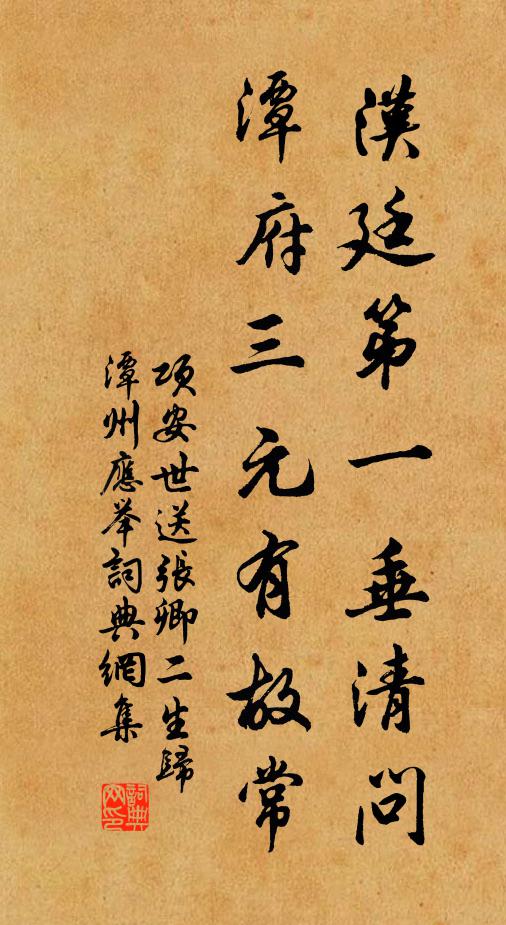 漢廷第一垂清問
潭府三元有故常
項安世送張卿二生歸
潭州應举詞典網集
詞典网印